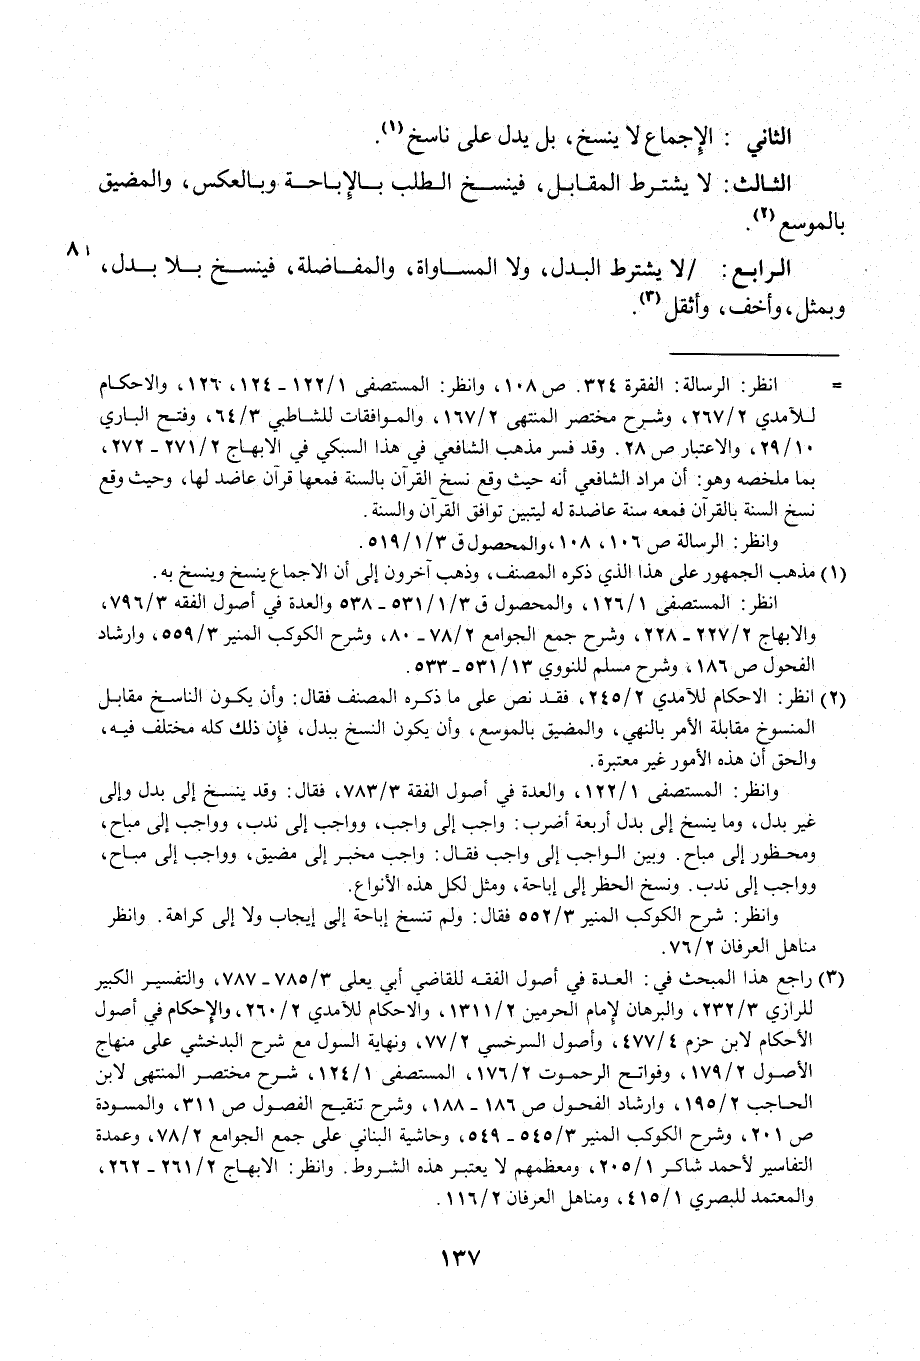 الثاني : الإجماع لا ينسخ، بل يدل على ناسخ(١).
الثالث: لا يشترط المقابل، فينسخ الطلب بالإباحة وبالعكس، والمضيق
بالموسع(٢).
الرابع: /لا يشترط البدل، ولا المساواة، والمفاضلة، فينسخ بلا بدل، ٨١
وبمثل، وأخف، وأثقل(٣).
= انظر: الرسالة: الفقرة ٣٢٤. ص ١٠٨، وانظر: المستصفى ١٢٢/١ - ١٢٤، ١٢٦، والاحكام
للآمدي ٢٦٧/٢، وشرح مختصر المنتهى ١٦٧/٢، والموافقات للشاطبي ٦٤/٣، وفتح الباري
٢٩/١٠، والاعتبار ص ٢٨. وقد فسر مذهب الشافعي في هذا السبكي في الابهاج ٢٧١/٢ - ٢٧٢،
بما ملخصه وهو: أن مراد الشافعي أنه حيث وقع نسخ القرآن بالسنة فمعها قرآن عاضد لها، وحيث وقع
نسخ السنة بالقرآن فمعه سنة عاضدة له ليتبين توافق القرآن والسنة.
وانظر: الرسالة ص ١٠٦، ١٠٨، والمحصول ق ٥١٩/١/٣.
(١) مذهب الجمهور على هذا الذي ذكره المصنف، وذهب آخرون إلى أن الاجماع ينسخ وينسخ به.
انظر: المستصفى ١٢٦/١، والمحصول ق ٥٣١/١/٣ - ٥٣٨ والعدة في أصول الفقه ٧٩٦/٣،
والابهاج ٢٢٧/٢ - ٢٢٨، وشرح جمع الجوامع ٧٨/٢ - ٨٠، وشرح الكوكب المنير ٥٥٩/٣، وارشاد
الفحول ص ١٨٦، وشرح مسلم للنووي ٥٣١/١٣ - ٥٣٣.
(٢) انظر: الاحكام للآمدي ٢٤٥/٢، فقد نص على ما ذكره المصنف فقال: وأن يكون الناسخ مقابل
المنسوخ مقابلة الأمر بالنهي، والمضيق بالموسع، وأن يكون النسخ ببدل، فإن ذلك كله مختلف فيه،
والحق أن هذه الأمور غير معتبرة.
وانظر: المستصفى ١٢٢/١، والعدة في أصول الفقة ٧٨٣/٣، فقال: وقد ينسخ إلى بدل وإلى
غير بدل، وما ينسخ إلى بدل أربعة أضرب: واجب إلى واجب، وواجب إلى ندب، وواجب إلى مباح،
ومحظور إلى مباح. وبين الواجب إلى واجب فقال: واجب مخبر إلى مضيق، وواجب إلى مباح،
وواجب إلى ندب. ونسخ الحظر إلى إباحة، ومثل لكل هذه الأنواع.
وانظر: شرح الكوكب المنير ٥٥٢/٣ فقال: ولم تنسخ إباحة إلى إيجاب ولا إلى كراهة. وانظر
مناهل العرفان ٧٦/٢.
(٣) راجع هذا المبحث في: العدة في أصول الفقه للقاضي أبي يعلى ٧٨٥/٣ - ٧٨٧، والتفسير الكبير
للرازي ٢٣٢/٣، والبرهان لإمام الحرمين ١٣١١/٢، والاحكام للآمدي ٢٦٠/٢، والإحكام في أصول
الأحكام لابن حزم ٤٧٧/٤، وأصول السرخسي ٧٧/٢، ونهاية السول مع شرح البدخشي على منهاج
الأصول ١٧٩/٢، وفواتح الرحموت ١٧٦/٢، المستصفى ١٢٤/١، شرح مختصر المنتهى لابن
الحاجب ١٩٥/٢، وارشاد الفحول ص ١٨٦ - ١٨٨، وشرح تنقيح الفصول ص ٣١١، والمسودة
ص ٢٠١، وشرح الكوكب المنير ٥٤٥/٣ - ٥٤٩، وحاشية البناني على جمع الجوامع ٧٨/٢، وعمدة
التفاسير لأحمد شاكر ٢٠٥/١، ومعظمهم لا يعتبر هذه الشروط. وانظر: الابهاج ٢٦١/٢ - ٢٦٢،
والمعتمد للبصري ٤١٥/١، ومناهل العرفان ١١٦/٢.
١٣٧